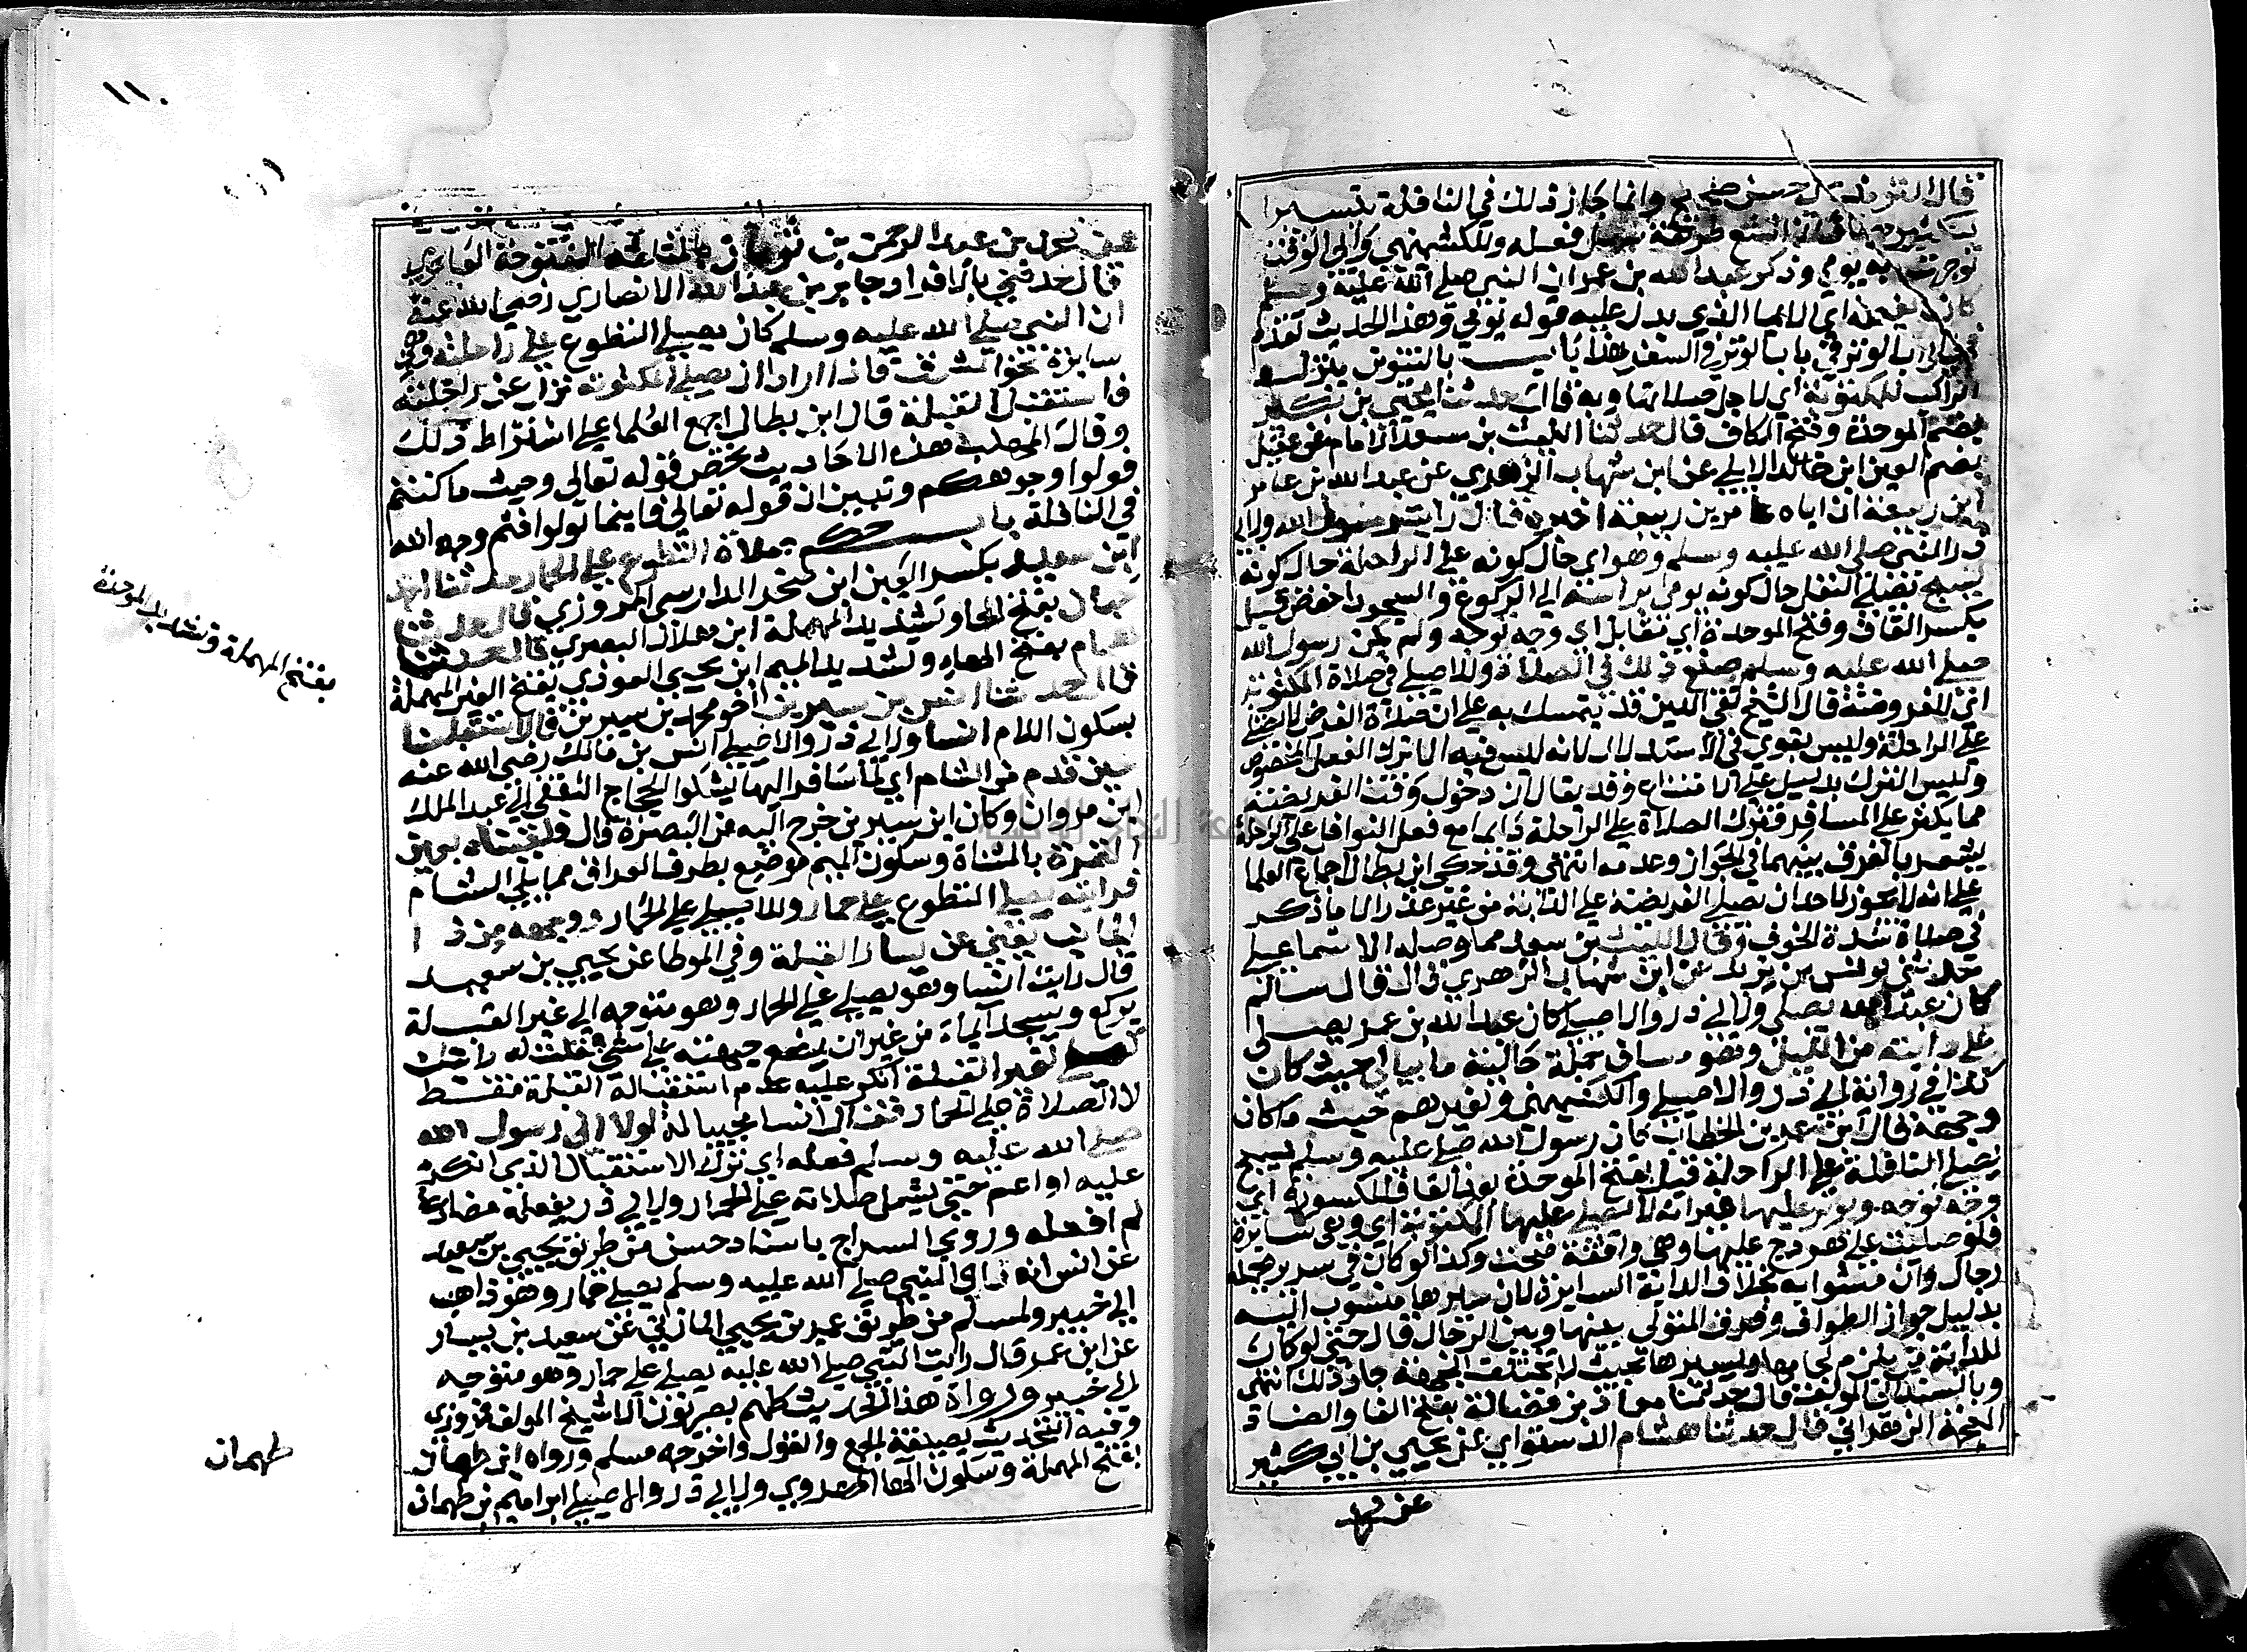 قال الترمذي حسن صحيح وانما جاز ذلك في النافلة تيسيرا
لتكثيرها فان ما اتسع طريقه سهل فعله وللكشميهني وابي الوقت
توجهت به يومي وذكر عبد الله بن عمر ان النبي صلى الله عليه وسلم
كان يفعله اي الايما الذي يدل عليه قوله يومي وهذا الحديث تقدم
في ابواب الوتر في باب الوتر في السفر هذا باب بالتنوين ينزل
الراكب للمكتوبة اي لاجل صلاتها وبه قال حدثنا يحيى بن بكير
بضم الموحدة وفتح الكاف قال حدثنا الليث بن سعد الامام عن عقيل
بضم العين ابن خالد الايلي عن ابن شهاب الزهري عن عبد الله بن عامر
ابن ربيعة ان اباه عامر بن ربيعة اخبره قال رايت رسول الله ولابي
ذر النبي صلى الله عليه وسلم وهو اي حال كونه على الراحلة حال كونه
يسبح يصلي النفل حال كونه يومي براسه الى الركوع والسجود اخفض قبل
بكسر القاف وفتح الموحدة اي مقابل اي وجه توجه ولم يكن رسول الله
صلى الله عليه وسلم يصنع ذلك في الصلاة وللاصيلي في صلاة المكتوبة
اي المفروضة قال الشيخ تقي الدين قد يتمسك به على ان صلاة الفرض لا تصلى
على الراحلة وليس بقوي في الاستدلال لانه ليس فيه الا ترك الفعل المخصوص
وليس الترك بدليل على الامتناع وقد يقال ان دخول وقت الفريضة
مما يكثر على المسافر فترك الصلاة على الراحلة دايما مع فعل النوافل على الراحلة
يشعر بالفرق بينهما في الجواز وعدمه انتهى وقد حكى ابن بطال اجماع العلما
على انه لا يجوز لاحد ان يصلي الفريضة على الدابة من غير عذر الا ما ذكر
في صلاة شدة الخوف وقال الليث بن سعد مما وصله الاسماعيلي
حدثني يونس بن يزيد عن ابن شهاب الزهري قال قال سالم
كان عبد الله يصلي ولابي ذر والاصيلي كان عبد الله بن عمر يصلي
على دابته من الليل وهو مسافر جملة حالية ما يبالي حيث كان
كذا في رواية ابي ذر والاصيلي والكشميهني ولغيرهم حيث ما كان
وجهه قال ابن عمر بن الخطاب كان رسول الله صلى عليه وسلم يسبح
يصلي النافلة على الراحلة قبل بفتح الموحدة بعد القاف المكسورة اي
وجه توجه ويوتر عليها غير انه لا يصلي عليها المكتوبة اي وهي سايرة
فلو صليت على هودج عليها وهي واقفة صحت وكذا لو كان في سرير يحمله
رجال وان مشوا به بخلاف الدابة السايرة لان سيرها منسوب اليه
بدليل جواز الطواف وفرق المتولي بينها وبين الرجال قال حتى لو كان
للدابة من يلزم لجامها ويسيرها بحيث لا تختلف الجهة جاز ذلك انتهى
وبالسند الى المولف قال حدثنا معاذ بن فضالة بفتح الفا والضاد
المعجمة الزهراني قال حدثنا هشام الدستواي عن يحيى بن ابي كثير
عن محمد
١١٠
عن محمد بن عبد الرحمن بن ثوبان بالمثلثة المفتوحة العامري
قال حدثني بالافراد جابر بن عبد الله الانصاري رضي الله عنه
ان النبي صلى الله عليه وسلم كان يصلي التطوع على راحلته وهي
سايرة نحو المشرق فاذا اراد ان يصلي المكتوبة نزل عن راحلته
فاستقبل القبلة قال ابن بطال اجمع العلما على اشتراط ذلك
وقال المهلب هذه الاحاديث تخص قوله تعالى وحيث ما كنتم
فولوا وجوهكم وتبين ان قوله تعالى فاينما تولوا فثم وجه الله
في النافلة باب حكم صلاة التطوع على الحمار حدثنا احمد
ابن سعيد بكسر العين ابن صخر الدارمي المروزي قال حدثنا
حبان بفتح الحا وتشديد المهملة ابن هلال البصري قال حدثنا
بفتح المهملة وتشديد الموحدة
همام بفتح الهاء وتشديد الميم ابن يحيى العوذي بفتح العين المهملة
قال حدثنا انس بن سيرين اخو محمد بن سيرين قال استقبلنا
بسكون اللام انسا ولابي ذر والاصيلي انس بن مالك رضي الله عنه
حين قدم من الشام اي لما سافر اليها يشكوا الحجاج الثقفي الى عبد الملك
ابن مروان وكان ابن سيرين خرج اليه من البصرة قال فلقيناه بعين
التمرة بالمثناة وسكون الميم موضع بطرف العراق مما يلي الشام
فرايته يصلي التطوع على حمار وللاصيلي على الحمار ووجهه من ذا
الجانب يعني عن يسار القبلة وفي الموطا عن يحيى بن سعيد
قال رايت انسا وهو يصلي على الحمار وهو متوجه الى غير القبلة
يركع ويسجد ايماء من غير ان يضع جبهته على شي فقلت له رايتك
تصلي لغير القبلة انكر عليه عدم استقباله القبلة فقط
لا الصلاة على الحمار فقال انسا مجيبا له لولا اني رسول الله
صلى الله عليه وسلم فعله اي ترك الاستقبال الذي انكره
عليه او اعم حتى يشمل صلاته على الحمار ولابي ذر يفعله مضارعا
لم افعله وروى السراج باسناد حسن من طريق يحيى بن سعيد
عن انس انه راى النبي صلى الله عليه وسلم يصلي حمار وهو ذاهب
الى خيبر ولمسلم من طريق عمرو بن يحيى المازني عن سعيد بن يسار
عن ابن عمر قال رايت النبي صلى الله عليه يصلي على حمار وهو متوجه
الى خيبر ورواة هذا الحديث كلهم بصريون الا شيخ المولف فمروزي
وفيه التحديث بصيغة الجمع والقول واخرجه مسلم ورواه ابن طهمان
بفتح المهملة وسكون الها الهروي ولابي ذر والاصيلي ابراهيم بن طهمان
طهمان